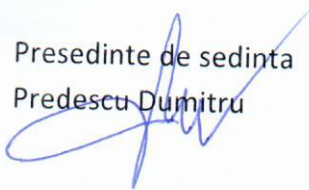 Presedinte de sedinta
Predescu Dumitru